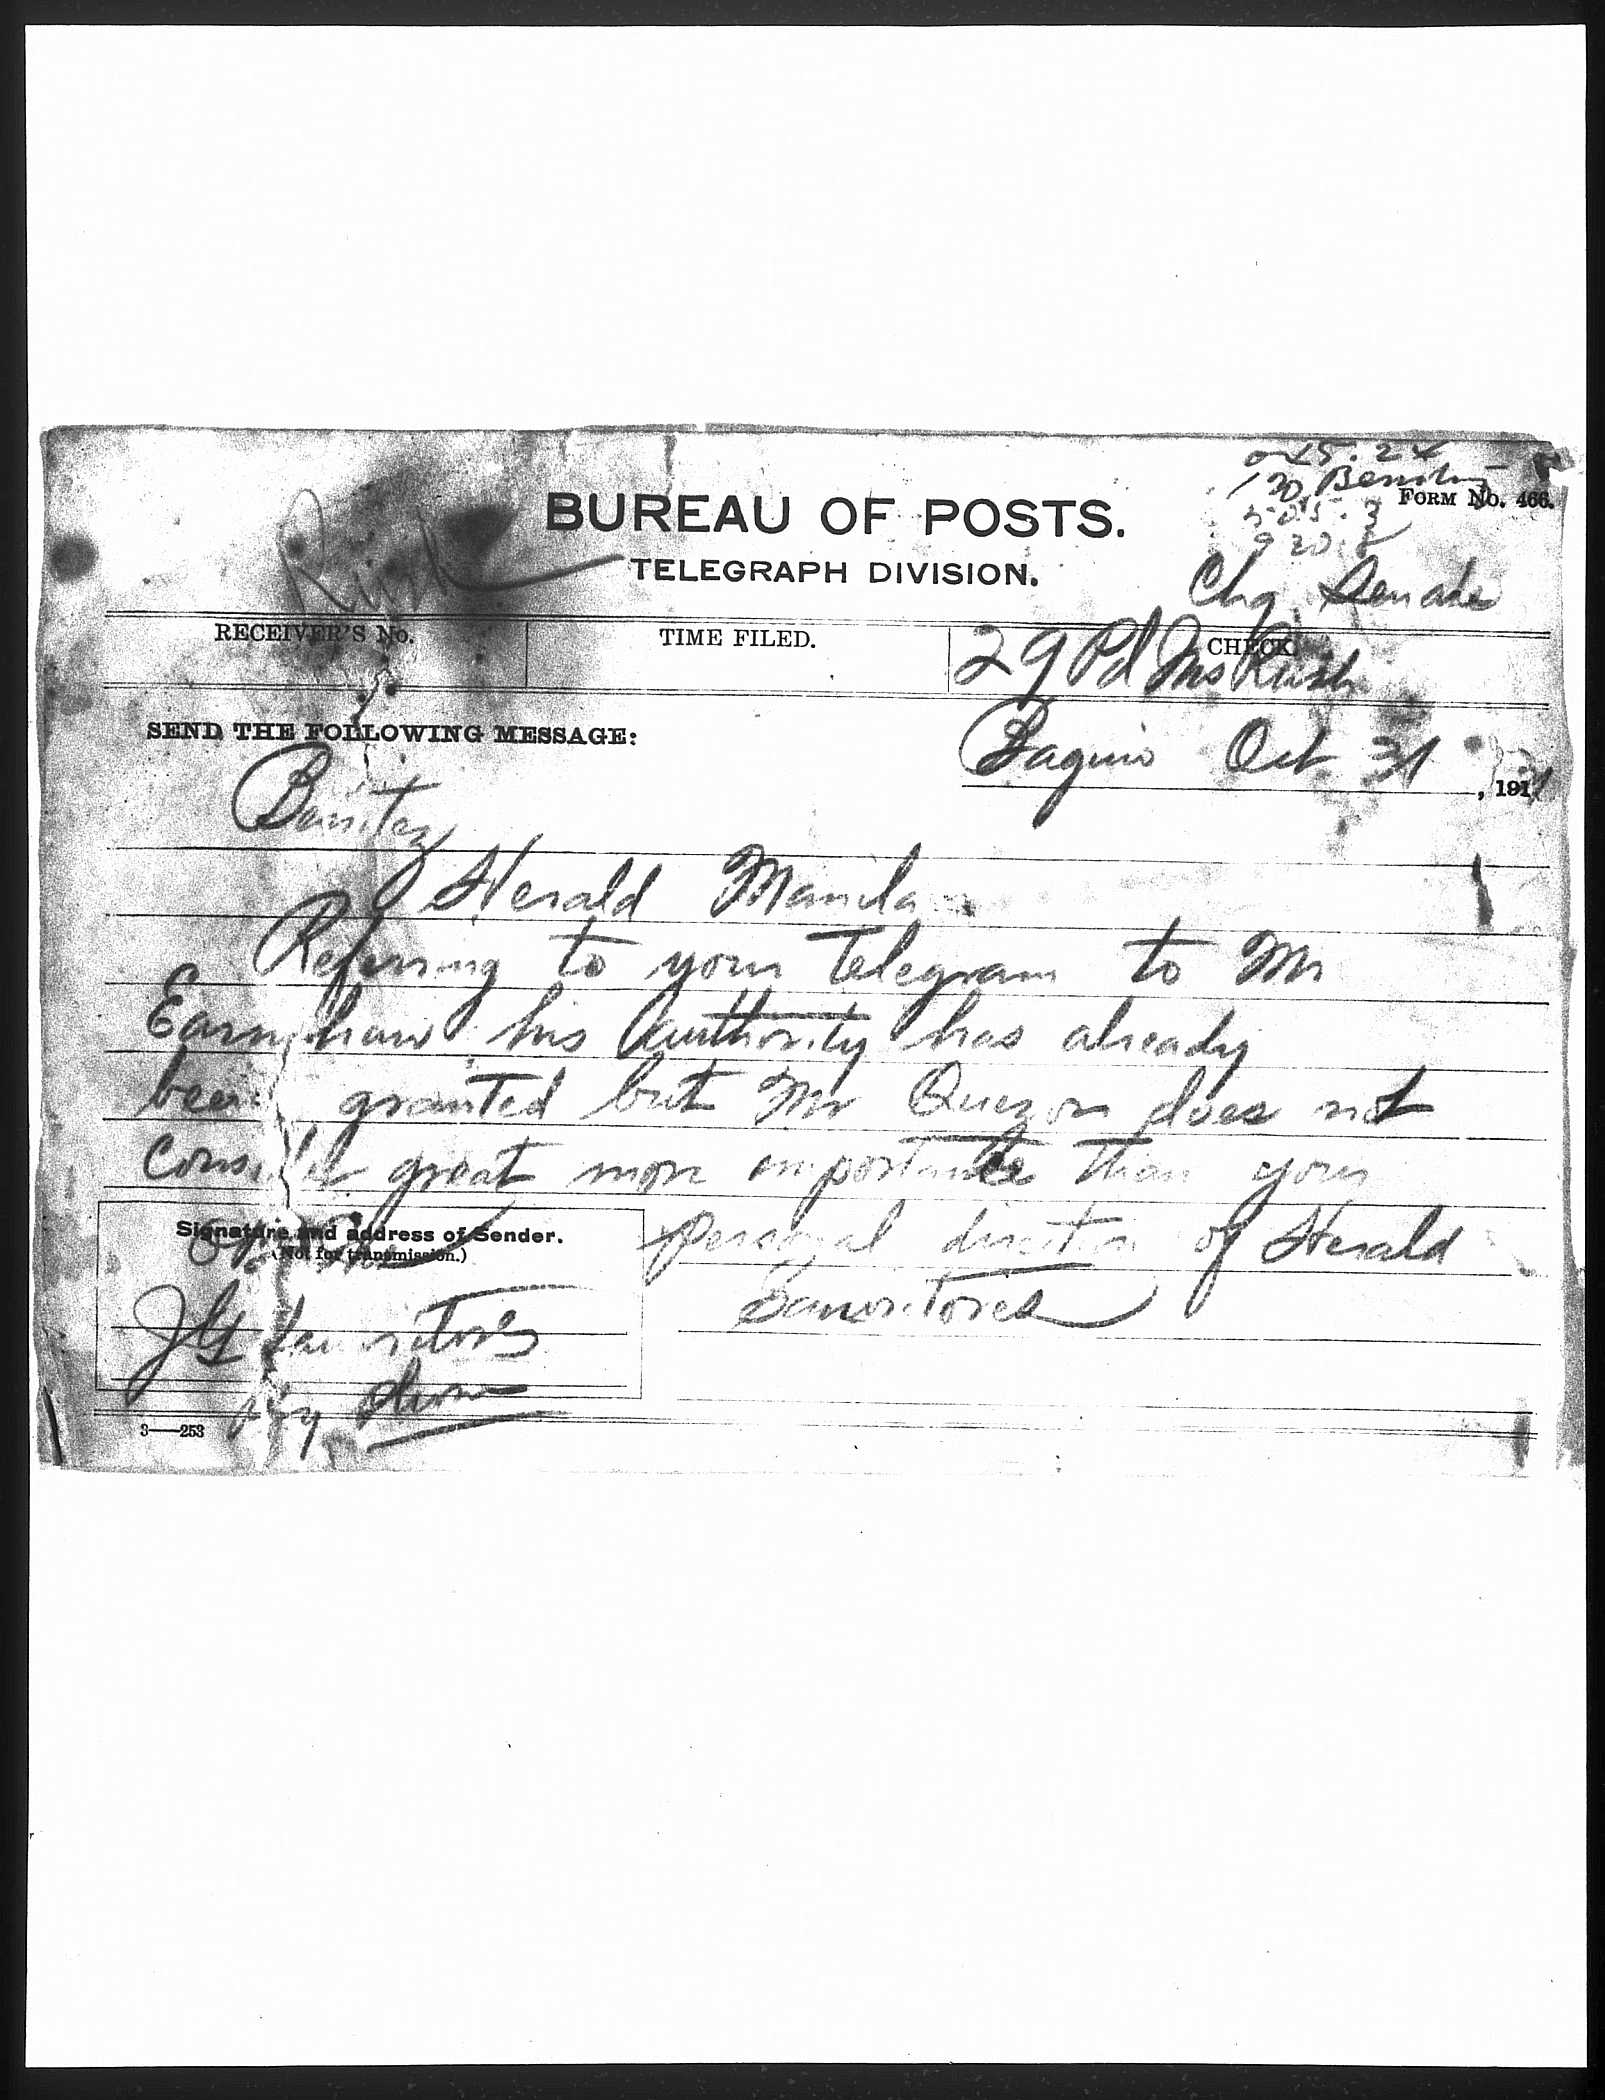 Rush
BUREAU OF POSTS.
FORM No. 466.
TELEGRAPH DIVISION.
Chg. Senate
RECEIVER'S No.
TIME FILED.
CHECK.
29 Pd Rush
SEND THE FOLLOWING MESSAGE:
Baguio Oct 31 , 191
Benitez
Herald Manila
Referring to your telegram to Mr
Earnshaw his authority has already
been granted but Mr Quezon does not
consider great more importance than your
personal direction of Herald
Sanvictores
Signature and address of Sender.
(Not for transmission.)
JG Sanvictores
by
3—253